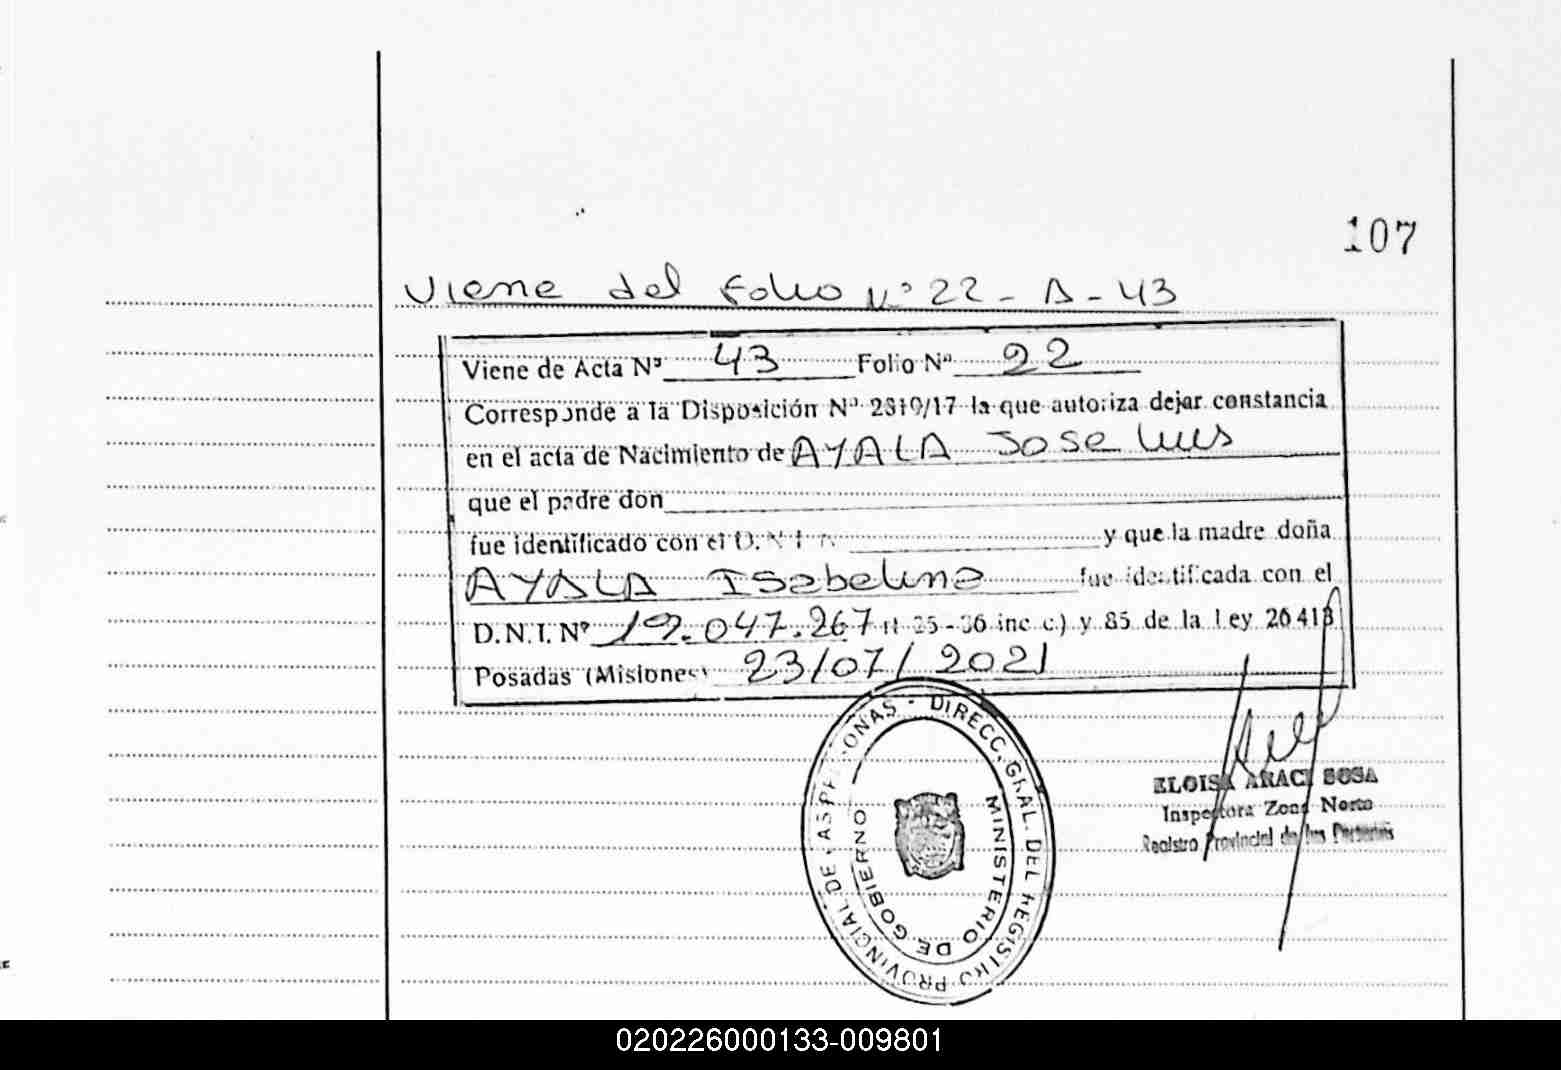 107
Viene del Folio Nº 22 - A - 43
Viene de Acta Nº 43 Folio Nº 22
Corresponde a la Disposición Nº 2810/17 la que autoriza dejar constancia
en el acta de Nacimiento de AYALA Jose Luis
que el padre don
fue identificado con el D.N.I. Nº y que la madre doña
AYALA Isabelina fue identificada con el
D.N.I. Nº 19.047.267 35-36 inc c.) y 85 de la Ley 26413
Posadas (Misiones) 23/07/2021
DIRECC. GRAL. DEL REGISTRO PROVINCIAL DE LAS PERSONAS -
MINISTERIO DE GOBIERNO
ELOISA ARACI SOSA
Inspectora Zona Norte
Registro Provincial de las Personas
020226000133-009801